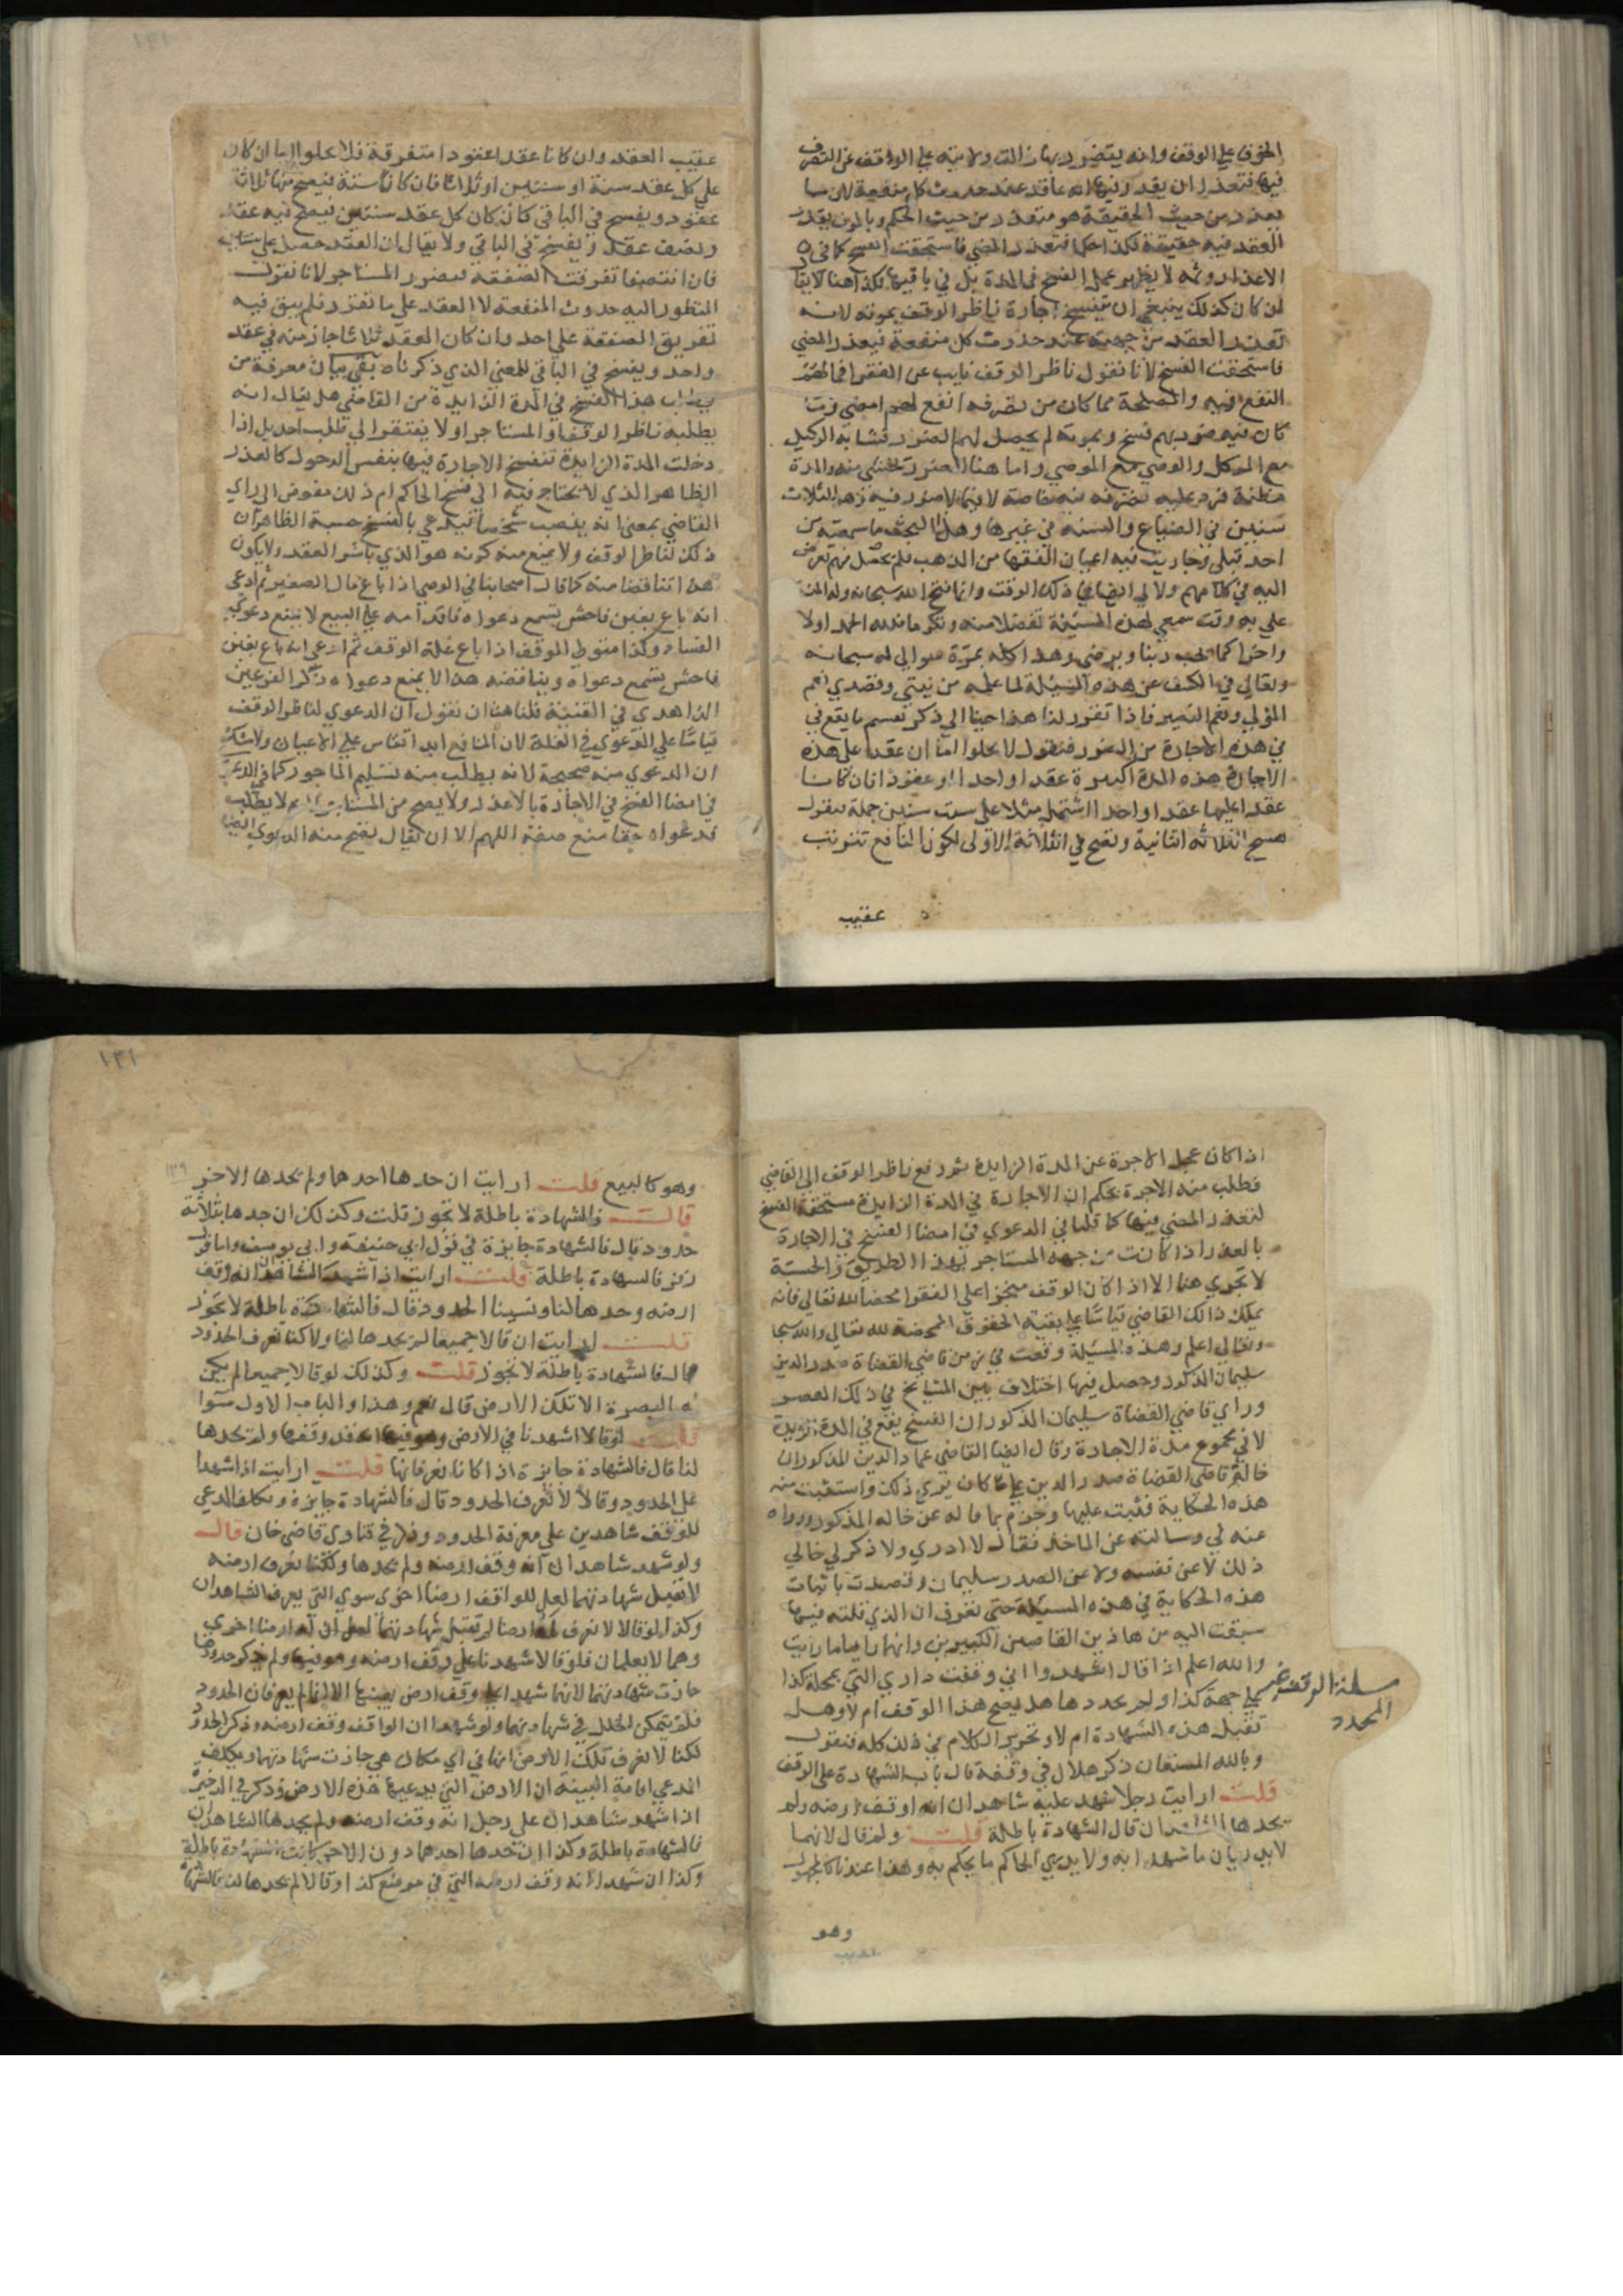 الخوف علي الوقف وانه يتضرر بها زالت ولايته علي الواقف عن التصرف
فيها فتعذر ان يقدر فيها انه عاقد عند حدوث كل منفعة لان ما
تعذر من حيث الحقيقة هو متعذر من حيث الحكم وبالموت يقدر
العقد فيه حقيقة فكذا حكما فتعذر المضي فاستحقت الفسخ كما في
الاعذار وثمه لا يظهر عمل الفسخ في المدة بل في باقيها فكذا هنا لا يقال
لن كان كذلك ينبغي ان تنفسخ اجارة ناظر الوقف بموته لانه
تعذر العقد من جهته عند حدوث كل منفعة فيعذر المضي
فاستحقت الفسخ لانا نقول ناظر الوقف نايب عن الفقرا فما المعتبر
النفع فيه والمصلحة مما كان من تصرفه انفع لهم امضي وما
كان فيه ضرر بهم فسخ وبموته لم يحصل لهم الضرر فشابه الوكيل
مع الموكل والوصي مع الموصي واما هنا الضرر يخشي منه والمدة
مظنة فرد عليه تصرفه فيه خاصة لا فيما لا ضرر فيه وهو الثلاث
سنين في الضياع والسنه في غيرها وهذا البحث ما سمعته من
احد قبلي وجاريت فيه اعيان الفقها من المذهب فلم يحصل منهم تعرض
اليه في كلامهم ولا لي ايضا في ذلك الوقت وانما فتح الله سبحانه وله المن
علي به وقت سمعي لهذه المسئلة تفضلا منه وتكرما فلله الحمد اولا
واخرا كما يحب ربنا ويرضي وهذا كله بمرة سوالي له سبحانه
وتعالي في الكشف عن هذه المسئلة لما علمه من نيتي وقصدي نعم
المولي ونعم النصير فاذا تقرر لنا هذا جينا الي ذكر تقسيم ما يقع في
في هذه الاجارة من الصور فنقول لا يخلوا اما ان عقد علي هذه
الاجارة هذه المدة الكبيرة عقدا واحدا او عقودا فان كانا
عقدا عليها عقدا واحدا اشتمل مثلا علي ست سنين جملة نقول
فسخ الثلاثه الثانية ونصح في الثلاثة الاولي لكون المنافع تترتب
عقيب
عقيب العقد وان كانا عقدا عقودا متفرقة فلا يخلوا اما ان كان
علي كل عقد سنة او سنتين او ثلاثا فان كان سنة فيصح منها ثلاثة
عقود ويفسخ في الباقي كان كان كل عقد سنتين فيصح فيه عقد
ونصف عقد ويفسخ في الباقي ولا يقال ان العقد حصل علي سنتين
فان انتصفا تفرقت الصفقه فيضرر المستاجر لانا نقول
المنظور اليه حدوث المنفعة لا العقد علي ما تقرر فلم يبق فيه
تفريق الصفقة علي احد وان كان العقد ثلاثا جاز منه في عقد
واحد ويفسخ في الباقي للمعني الذي ذكرناه بقي بيان معرفة من
يطلب هذا الفسخ في المدة الزايدة من القاضي هل يقال انه
يطلبه ناظر الوقف او المستاجر او لا يفتقر الي طلب احد بل اذا
دخلت المدة الزايدة تنفسخ الاجارة فيها بنفس الدخول كالعذر
الظاهر الذي لا يحتاج فيه الي فسخ الحاكم ام ذلك مفوض الي راي
القاضي بمعني انه ينصب شخصا فيدعي بالفسخ حسبة الظاهر ان
ذلك لناظر الوقف ولا يمنع منه كونه هو الذي باشر العقد ولا يكون
هذا تناقضا منه كما قال اصحابنا في الوصي اذا باع مال الصغير ثم ادعي
انه باع بغبن فاحش تسمع دعواه فاقدامه علي البيع لا يمنع دعوي
الفساد وكذا متولي الوقف اذا باع غلة الوقف ثم ادعي انه باع بغبن
فاحش تسمع دعواه ويناقضه هذا لا يمنع دعواه ذكر الفرعين
الزاهدي في القنية قلنا هنا ان نقول ان الدعوي لناظر الوقف
قياسا علي الدعوي في الغلة لان المنافع ابدا تقاس علي الاعيان ولا شك
ان الدعوي منه صحيحة لانه يطلب منه تسليم الماجور كما في الدعوي
في امضا الفسخ في الاجارة بالاعذار ولا يصح من المستاجر لا يطلب
بدعواه حقا منع صفته اللهم الا ان يقال يصح منه الدعوي ايضا
اذا كان عجل الاجرة عن المدة الزايدة ثم دفع ناظر الوقف الي القاضي
فطلب منه الاجرة بحكم ان الاجارة في المدة الزايدة مستحقة الفسخ
لتعذر المضي فيها كما قلنا في الدعوي في امضا الفسخ في الاجارة
بالعذر اذا كانت من جهة المستاجر بهذا الطريق والحسبة
لا تجري هنا الا اذا كان الوقف منجزا علي الفقرا محضا لله تعالي فانه
يملك ذلك القاضي قياسا علي بقية الحقوق المحضة لله تعالي والله سبحا
وتعالي اعلم وهذه المسئلة وقعت في زمن قاضي القضاة صدر الدين
سليمان المذكور وحصل فيها اختلاف بين المشايخ في ذلك العصر
وراي قاضي القضاة سليمان المذكور ان الفسخ يقع في المدة الزايدة
لا في مجموع مدة الاجارة وقال ايضا القاضي عماد الدين المذكور ان
خاله قاضي القضاة صدر الدين علي كان يري ذلك واستثبت منه
هذه الحكاية فثبت عليها وجزم بما قاله عن خاله المذكور ورواه
عنه لي وسالته عن الماخذ فقال لا ادري ولا ذكر لي خالي
ذلك لا عن نفسه ولا عن الصدر سليمان وقصدت باثبات
هذه الحكاية في هذه المسئلة حتي تعرف ان الذي قلته فيها
سبقت اليه من هاذين القاضيين الكبيرين وانهما رايا ما رايت
والله اعلم اذا قال اشهدوا اني وقفت داري التي بمحلة كذا
في جهة كذا ولم يحددها هل يصح هذا الوقف ام لا وهل
تقبل هذه الشهادة ام لا وتحرير الكلام في ذلك كله فنقول
وبالله المستعان ذكر هلال في وقفه قال باب الشهادة علي الوقف
قلت ارايت رجلا شهد عليه شاهدان انه اوقف ارضه ولم
يحددها الشاهدان قال الشهادة باطلة قلت ولم قال لانهما
لا يدريان ما شهدا به ولا يدري الحاكم ما يحكم به وهذا عندنا كالمجهول
مسئلة الوقف غير
المحدد
وهو
وهو كالبيع قلت ارايت ان حدها احدهما ولم يحدها الاخر
قال فالشهادة باطلة لا تجوز قلت وكذلك ان حدها بثلاثة
حدود قال فالشهادة جايزة في قول ابي حنيفه وابي يوسف واما قول
زفر فالشهادة باطلة قلت ارايت اذا شهد الشاهدان انه وقف
ارضه وحدها لنا ونسينا الحدود قال فالشهادة باطلة لا تجوز
قلت ارايت ان قالا جميعا لم يحدها لنا ولا كنا نعرف الحدود
قال فالشهادة باطلة لا تجوز قلت وكذلك لو قالا جميعا لم يكن
له البصرة الا تلك الارض قال نعم وهذا والباب الاول سوا
قلت لو قالا اشهدنا في الارض وهو فيها انه قد وقفها ولم يحدها
لنا قال فالشهادة جايزة اذا كانا يعرفانها قلت ارايت اذا شهدا
علي الحدود وقالا لا نعرف الحدود قال فالشهادة جايزة ويكلف المدعي
للوقف شاهدين علي معرفة الحدود وذكر في فتاوي قاضي خان قال
ولو شهد شاهدان انه وقف ارضه ولم يحدها ولكنا نعرف ارضه
لا تقبل شهادتهما لعل للواقف ارضا اخري سوي التي يعرف الشاهدان
وكذا لو قالا لا نعرف له ارضا لم تقبل شهادتهما لعل ان له ارضا اخري
وهما لا يعلمان فلو قالا شهدنا علي وقف ارضه وهو فيها ولم يذكر حدودها
جازت شهادتهما لانهما شهدا علي وقف ارض بعينها الا انهما لم يعرفان الحدود
فلم يتمكن الخلل في شهادتهما ولو شهدا ان الواقف وقف ارضه وذكر الحدود
لكنا لا نعرف تلك الارض انها في اي مكان هي جازت شهادتهما ويكلف
المدعي اقامة البينه ان الارض التي يدعيها هذه الارض وذكر في الذخيرة
اذا شهد شاهدان علي رجل انه وقف ارضه ولم يحدها الشاهدان
فالشهادة باطلة وكذا ان حدها احدهما دون الاخر كانت الشهادة باطلة
وكذا ان شهدا انه وقف ارضه التي في موضع كذا وقالا لم يحدها لنا فالشهادة